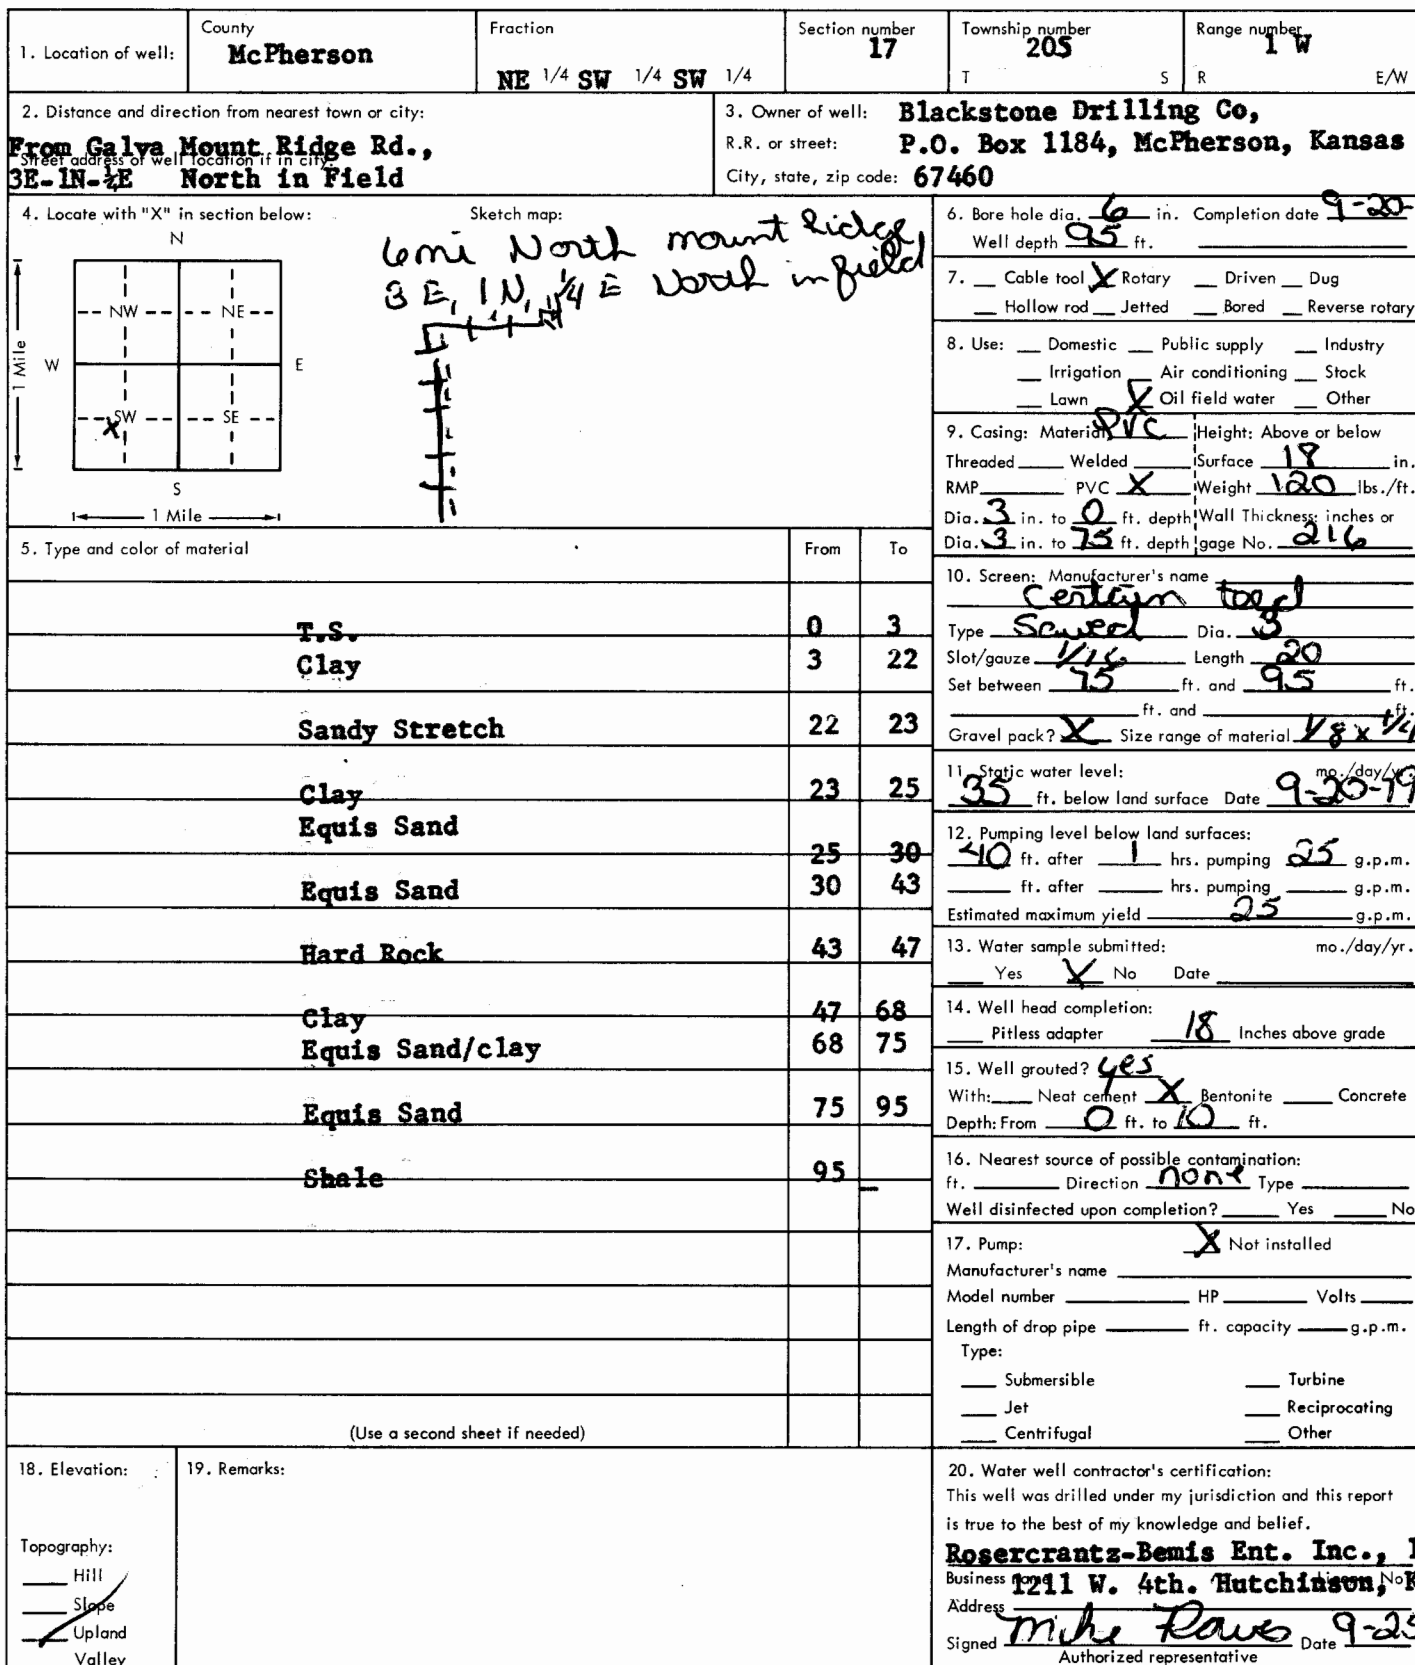 1. Location of well:
County
McPherson
Fraction
NE 1/4 SW 1/4 SW 1/4
Section number
17
Township number
20S
T S
Range number
1 W
R E/W
2. Distance and direction from nearest town or city:
From Galva Mount Ridge Rd.,
Street address of well location if in city:
3E-1N-½E North in Field
3. Owner of well: Blackstone Drilling Co,
R.R. or street: P.O. Box 1184, McPherson, Kansas
City, state, zip code: 67460
4. Locate with "X" in section below:
N
NW NE
W E
SW SE
X
S
1 Mile
1 Mile
Sketch map:
6mi North mount Ridge
3 E, 1 N, 1/4 E North in field
5. Type and color of material From To
T.S. 0 3
Clay 3 22
Sandy Stretch 22 23
Clay 23 25
Equis Sand
25 30
Equis Sand 30 43
Hard Rock 43 47
Clay 47 68
Equis Sand/clay 68 75
Equis Sand 75 95
Shale 95
(Use a second sheet if needed)
6. Bore hole dia. 6 in. Completion date 9-20-
Well depth 95 ft.
7. Cable tool X Rotary Driven Dug
Hollow rod Jetted Bored Reverse rotary
8. Use: Domestic Public supply Industry
Irrigation Air conditioning Stock
Lawn X Oil field water Other
9. Casing: Material PVC Height: Above or below
Threaded Welded Surface 18 in.
RMP PVC X Weight 120 lbs./ft.
Dia. 3 in. to 0 ft. depth Wall Thickness: inches or
Dia. 3 in. to 75 ft. depth gage No. 216
10. Screen: Manufacturer's name
Certain teed
Type Sawed Dia. 3
Slot/gauze 1/16 Length 20
Set between 75 ft. and 95 ft.
ft. and ft.
Gravel pack? X Size range of material 1/8 x 1/4
11. Static water level: mo./day/yr.
35 ft. below land surface Date 9-20-79
12. Pumping level below land surfaces:
40 ft. after 1 hrs. pumping 25 g.p.m.
ft. after hrs. pumping g.p.m.
Estimated maximum yield 25 g.p.m.
13. Water sample submitted: mo./day/yr.
Yes X No Date
14. Well head completion:
Pitless adapter 18 Inches above grade
15. Well grouted? yes
With: Neat cement X Bentonite Concrete
Depth: From 0 ft. to 10 ft.
16. Nearest source of possible contamination:
ft. Direction none Type
Well disinfected upon completion? Yes No
17. Pump: X Not installed
Manufacturer's name
Model number HP Volts
Length of drop pipe ft. capacity g.p.m.
Type:
Submersible Turbine
Jet Reciprocating
Centrifugal Other
18. Elevation:
Topography:
Hill
Slope
Upland
Valley
19. Remarks:
20. Water well contractor's certification:
This well was drilled under my jurisdiction and this report
is true to the best of my knowledge and belief.
Rosercrantz-Bemis Ent. Inc.,
Business name No
1211 W. 4th. Hutchinson,
Address
Signed Mike Date 9-25
Authorized representative